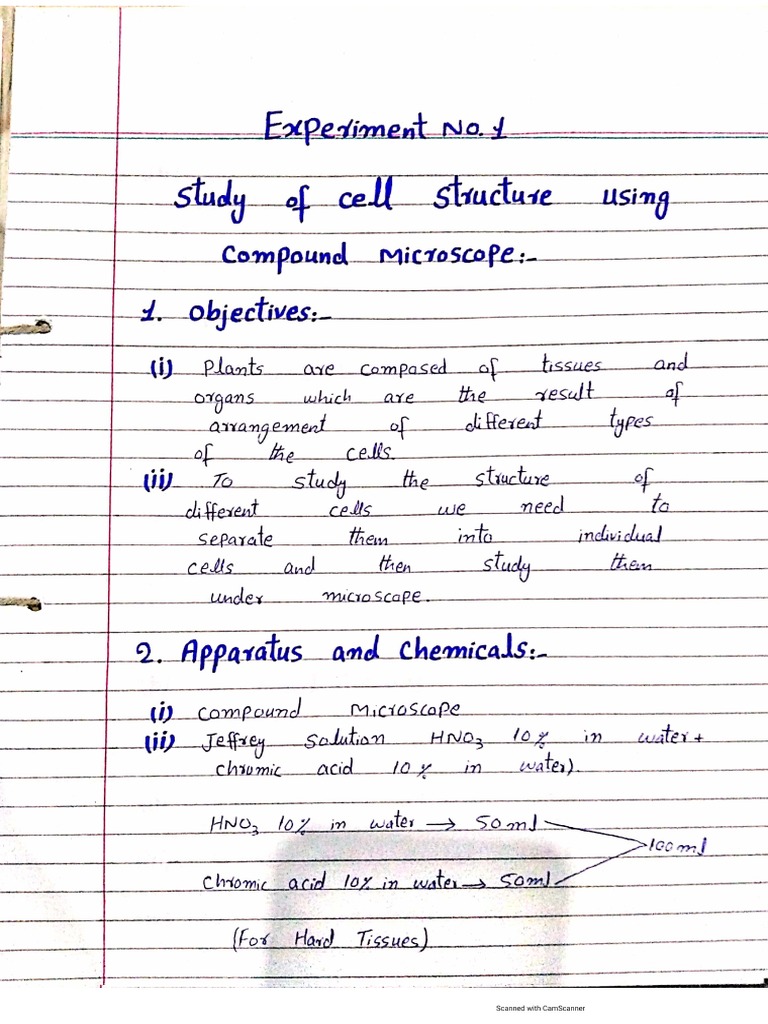 Experiment No. 1
Study of cell structure using
Compound Microscope:-
1. Objectives:-
(i) Plants are composed of tissues and
organs which are the result of
arrangement of different types
of the cells.
(ii) To study the structure of
different cells we need to
separate them into individual
cells and then study them
under microscope.
2. Apparatus and Chemicals:-
(i) Compound Microscope
(ii) Jeffrey Solution HNO3 10% in water +
chromic acid 10% in water).
HNO3 10% in water → 50ml
100ml
Chromic acid 10% in water → 50ml
(For Hard Tissues)
Scanned with CamScanner